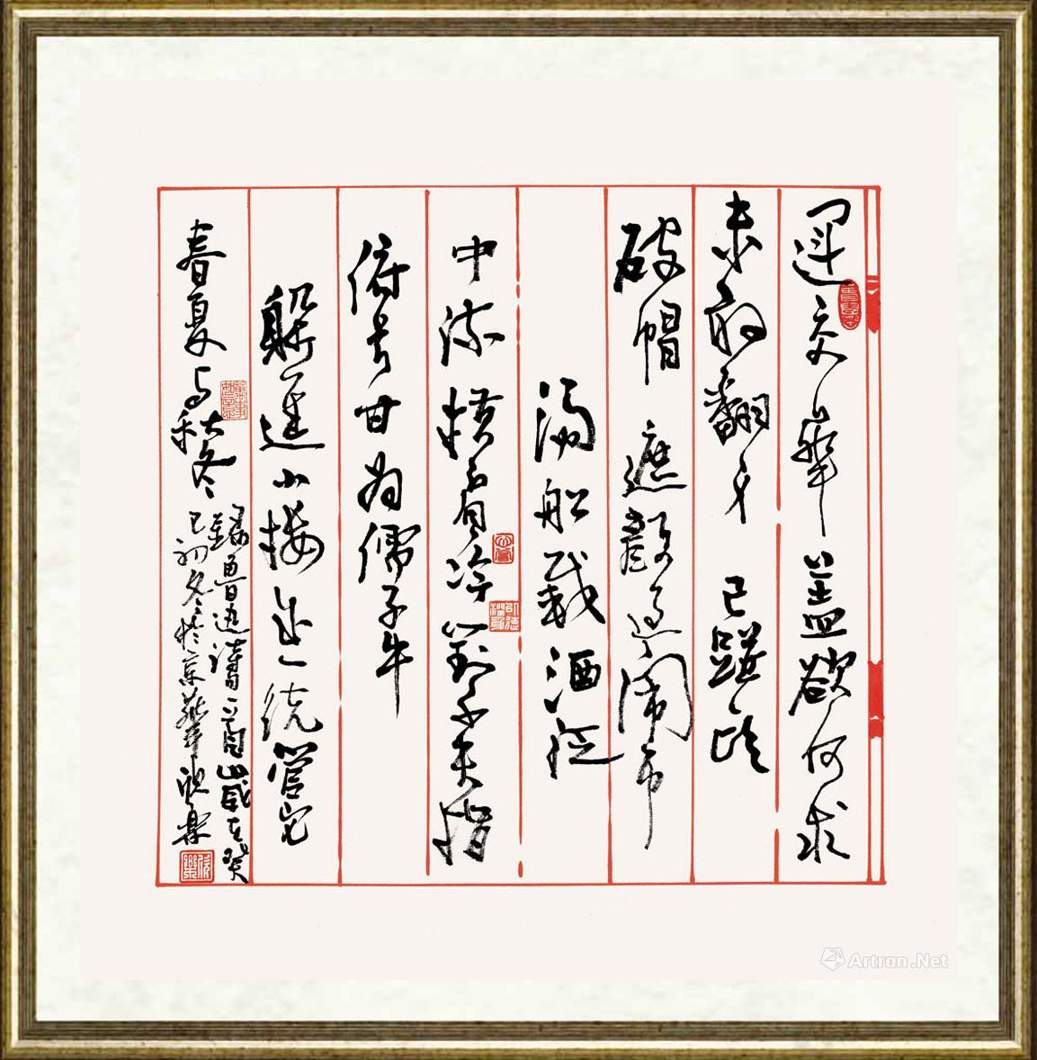 運交華蓋欲何求
未敢翻身已踫頭
破帽遮顏過鬧市
漏船載酒泛
中流橫眉冷對千夫指
俯首甘為儒子牛
躲進小樓成一統管它
春夏与秋冬
錄魯迅詩一首歲在癸
巳初冬於京華欣樂
Artron.Net